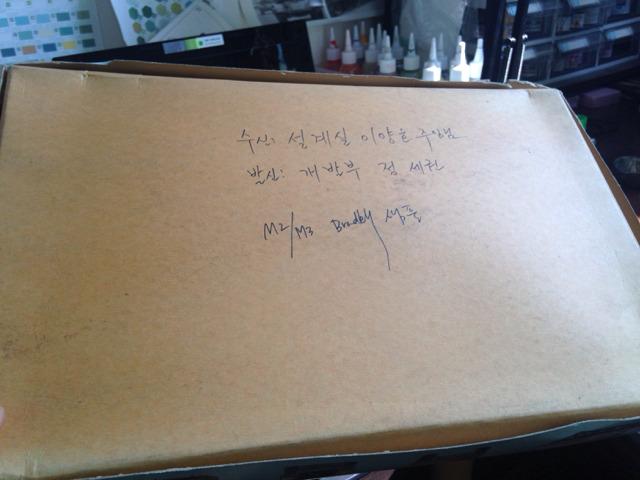 수신: 설계실 이양호 주임님
발신: 개발부 정 세권
M2/M3 Bradley 샘플